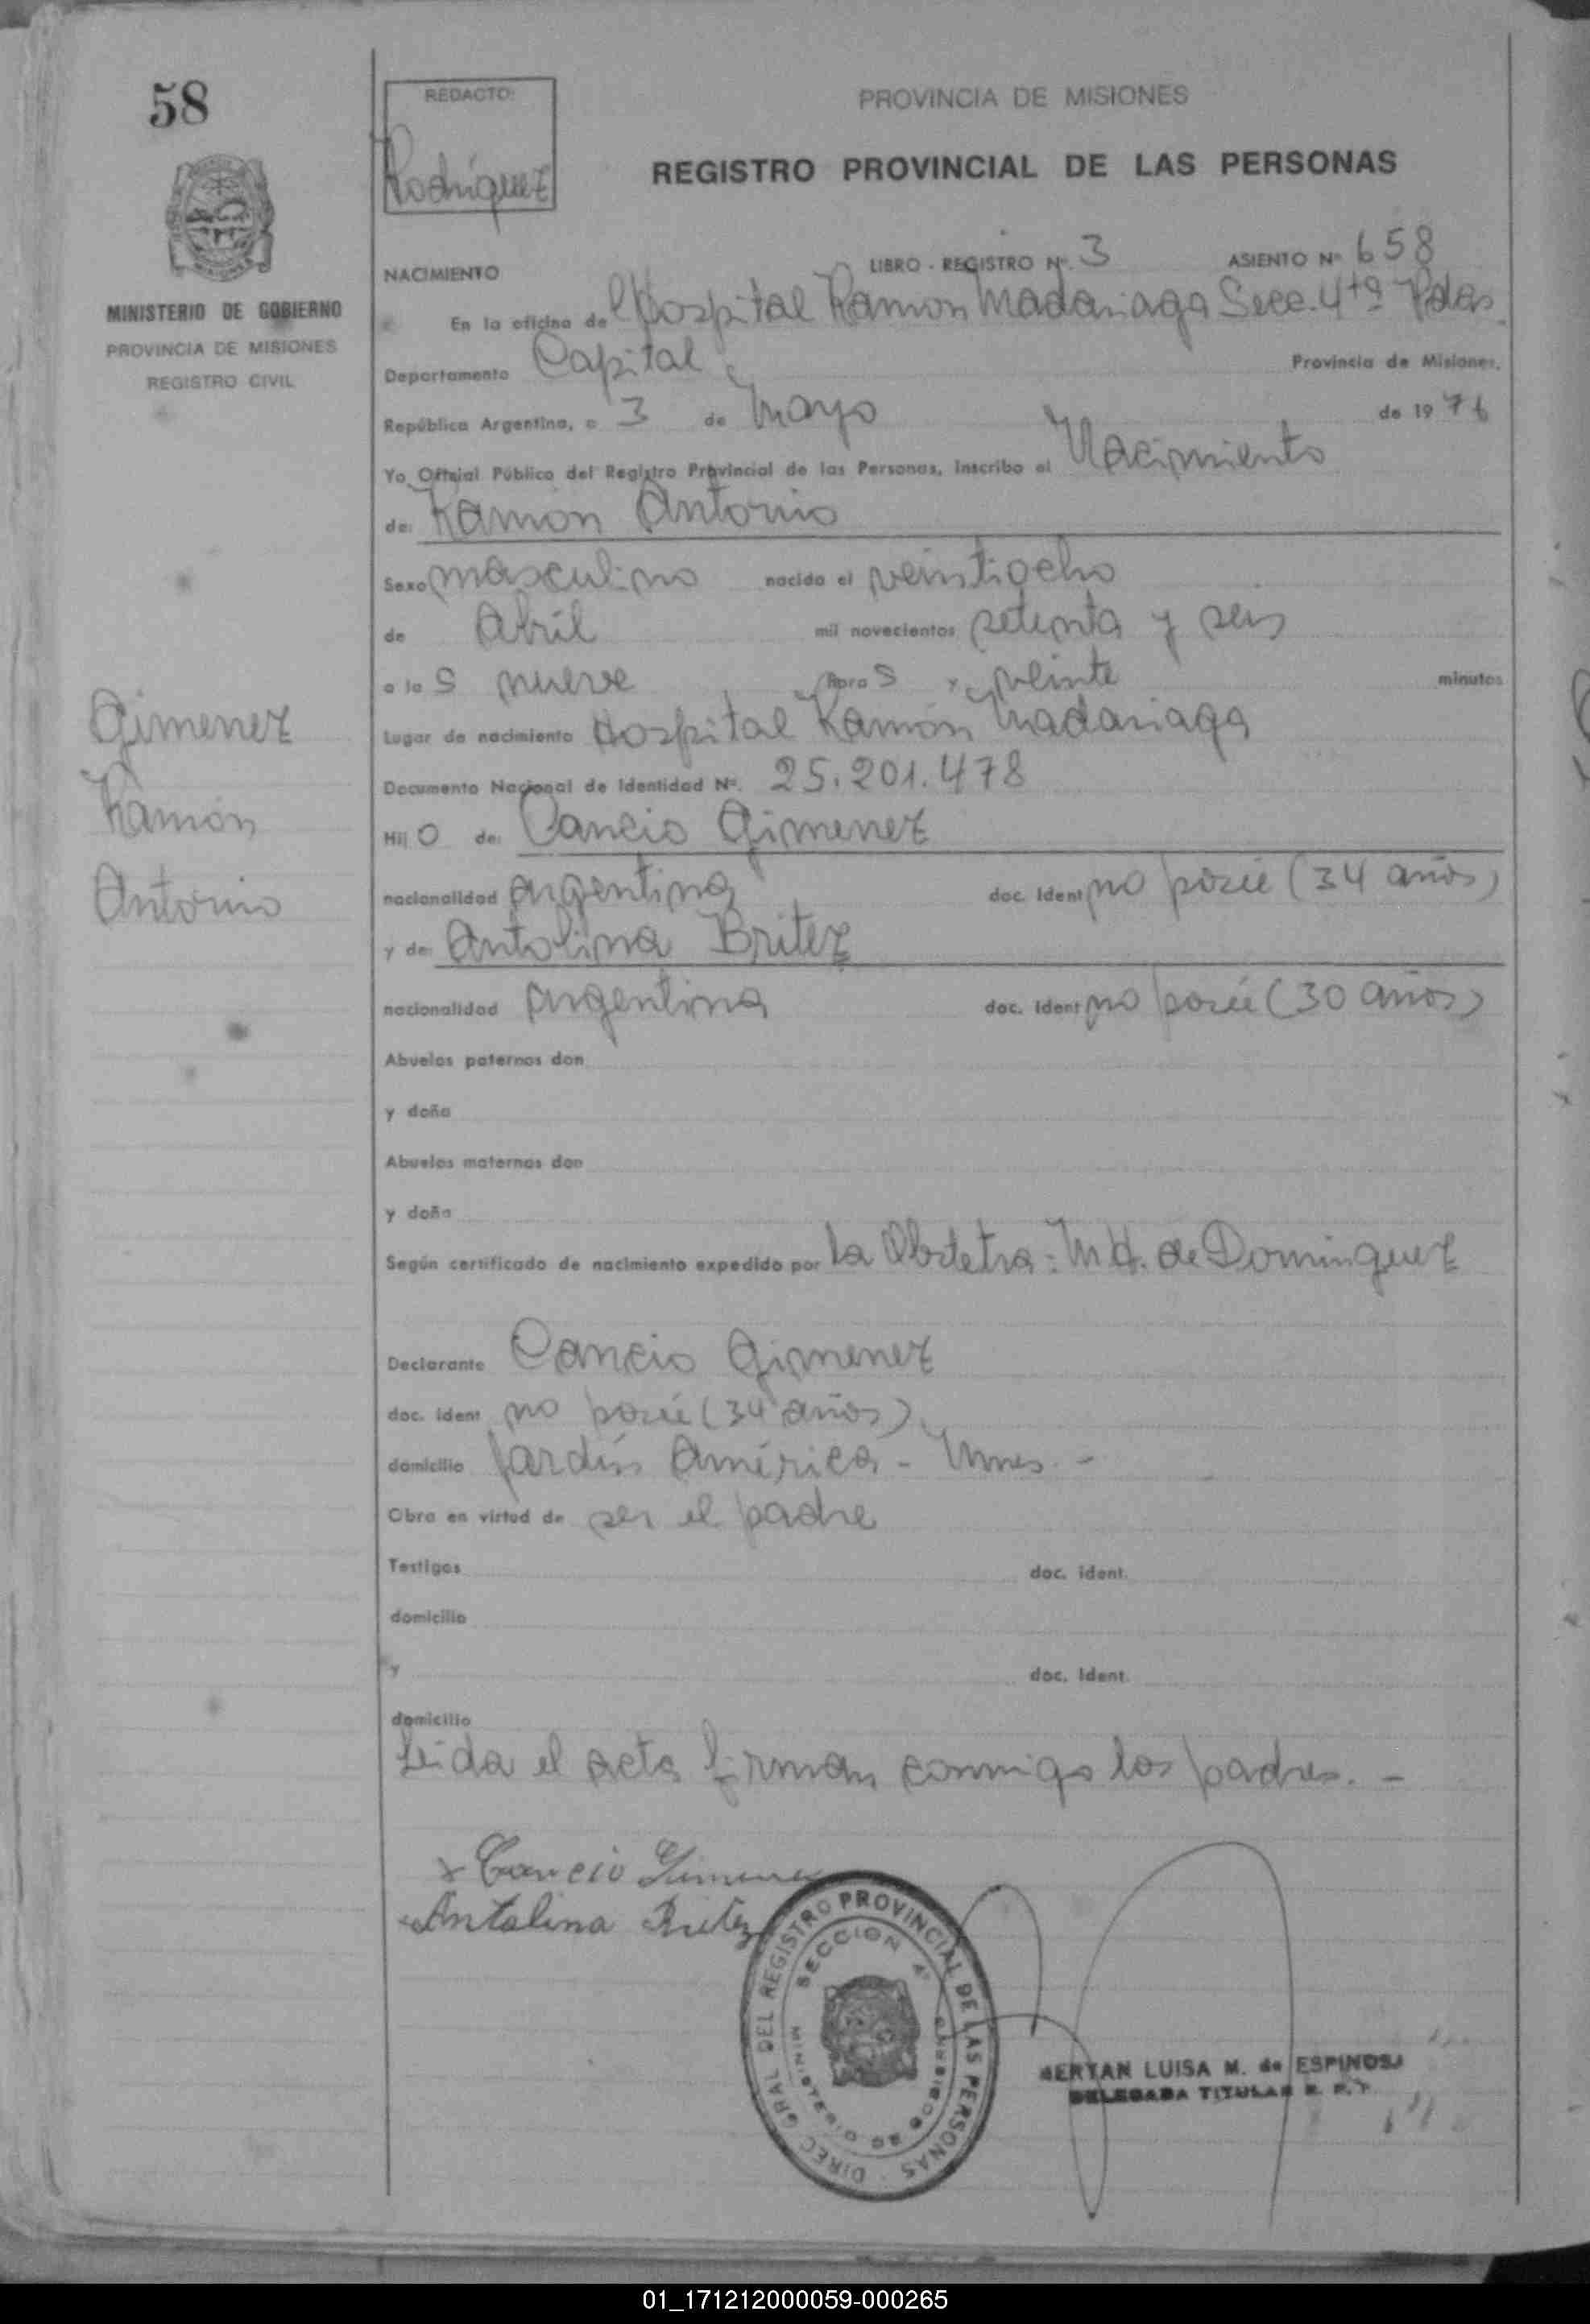 58
REDACTO:
Rodriguez
PROVINCIA DE MISIONES
REGISTRO PROVINCIAL DE LAS PERSONAS
MINISTERIO DE GOBIERNO
PROVINCIA DE MISIONES
REGISTRO CIVIL
NACIMIENTO LIBRO - REGISTRO Nº. 3 ASIENTO Nº 658
En la oficina del Hospital Ramón Madariaga Secc. 4ta Pdas.
Departamento Capital Provincia de Misiones,
República Argentina, a 3 de Mayo de 1976
Yo Oficial Público del Registro Provincial de las Personas, Inscribo el Nacimiento
de: Ramón Antonio
Sexo masculino nacido el veintiocho
de Abril mil novecientos setenta y seis
a las nueve horas y veinte minutos
Lugar de nacimiento Hospital Ramón Madariaga
Documento Nacional de Identidad Nº. 25.201.478
Hijo de: Cancio Gimenez
nacionalidad argentina doc. Ident no posée (34 años)
y de: Antolina Britez
nacionalidad argentina doc. Ident no posée (30 años)
Gimenez
Ramón
Antonio
Abuelos paternos don
y doña
Abuelos maternos don
y doña
Según certificado de nacimiento expedido por la Obstetra: M. H. de Dominguez
Declarante Cancio Gimenez
doc. ident no posée (34 años)
domicilio Jardín América - Mnes. -
Obra en virtud de ser el padre
Testigos doc. ident.
domicilio
y doc. Ident.
domicilio
Leida el acta firman conmigo los padres. -
x Cancio Gimenez
Antolina Britez
DIREC. GRAL DEL REGISTRO PROVINCIAL DE LAS PERSONAS
SECCION 4º
MINISTERIO DE GOBIERNO
LUISA M. de ESPINOSA
DELEGADA TITULAR R. P. P.
01_171212000059-000265